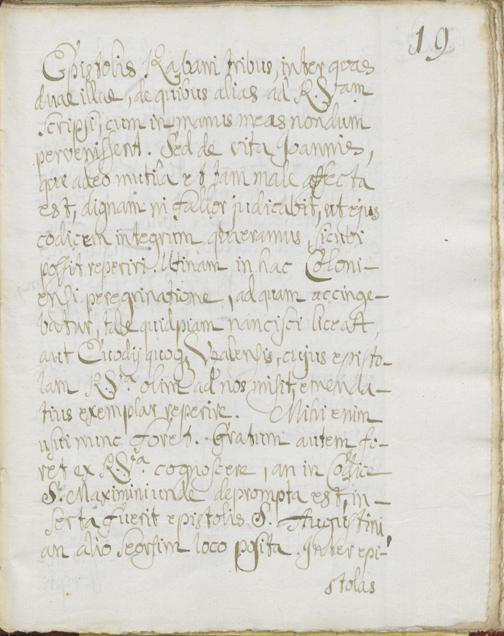 19
Epistolis Rabani tribus, inter quas
duae illae, de quibus alias ad R. Vram
scripsi, cum in manus meas nondum
pervenissent. Sed de vita Joannis,
quae adeo mutila et tam male affecta
est, dignam ni fallor judicabit, ut ejus
codicem integrum quaeramus, sicubi
possit reperiri. Utinam in hac Coloni-
ensi peregrinatione, ad quam accinge-
batur, tale quidpiam nancisci liceat,
aut Evodij quoq. Uzalensis, cujus episto-
lam R. Vra olim ad nos misit, emenda-
tius exemplar reperire. Mihi enim
usui nunc foret. Gratum autem fo-
ret ex R. Vra cognoscere, an in Codice
S. Maximini unde deprompta est, in-
serta fuerit epistolis S. Augustini
an alio seorsim loco posita. Inter epi-
stolas